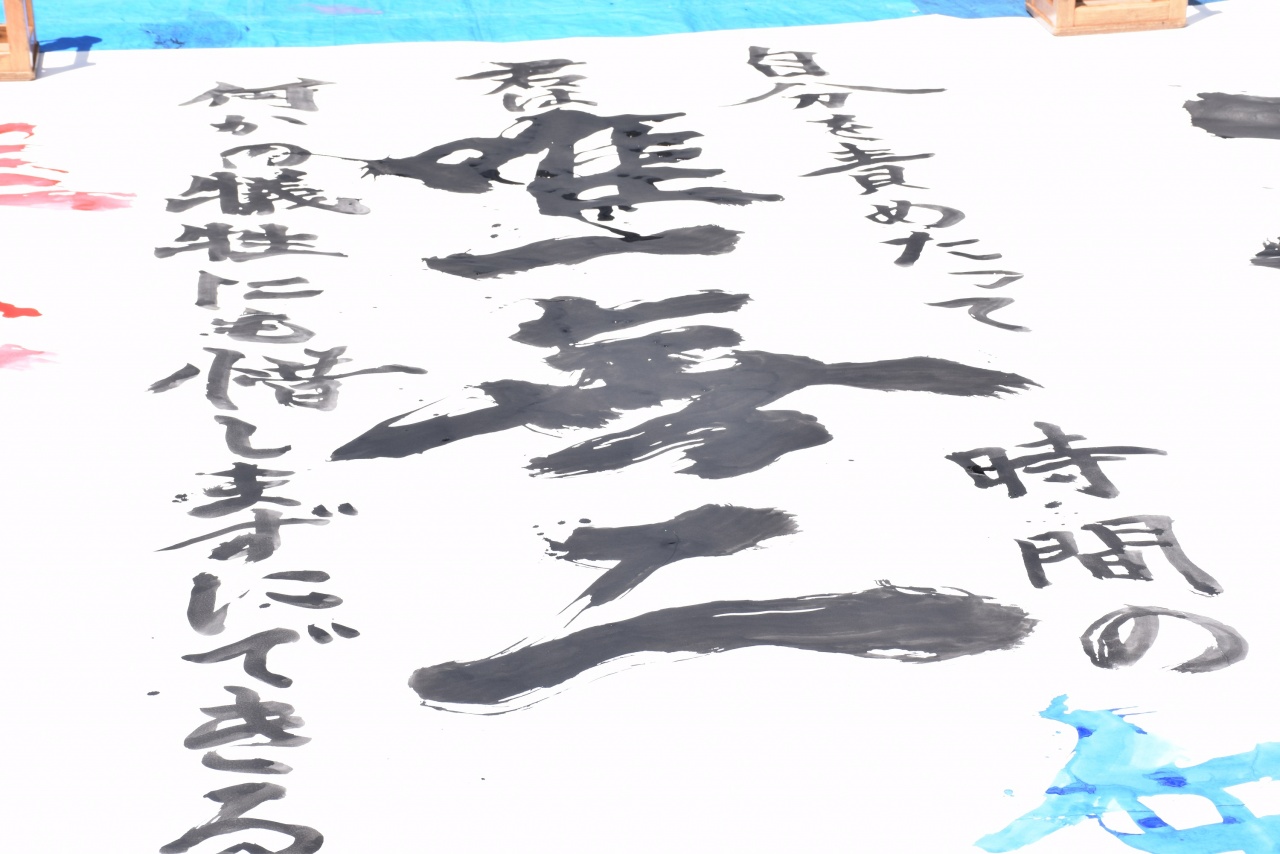 時間の
自分を責めたって
君は
唯一無二
何かの犠牲にも惜しまずにできる